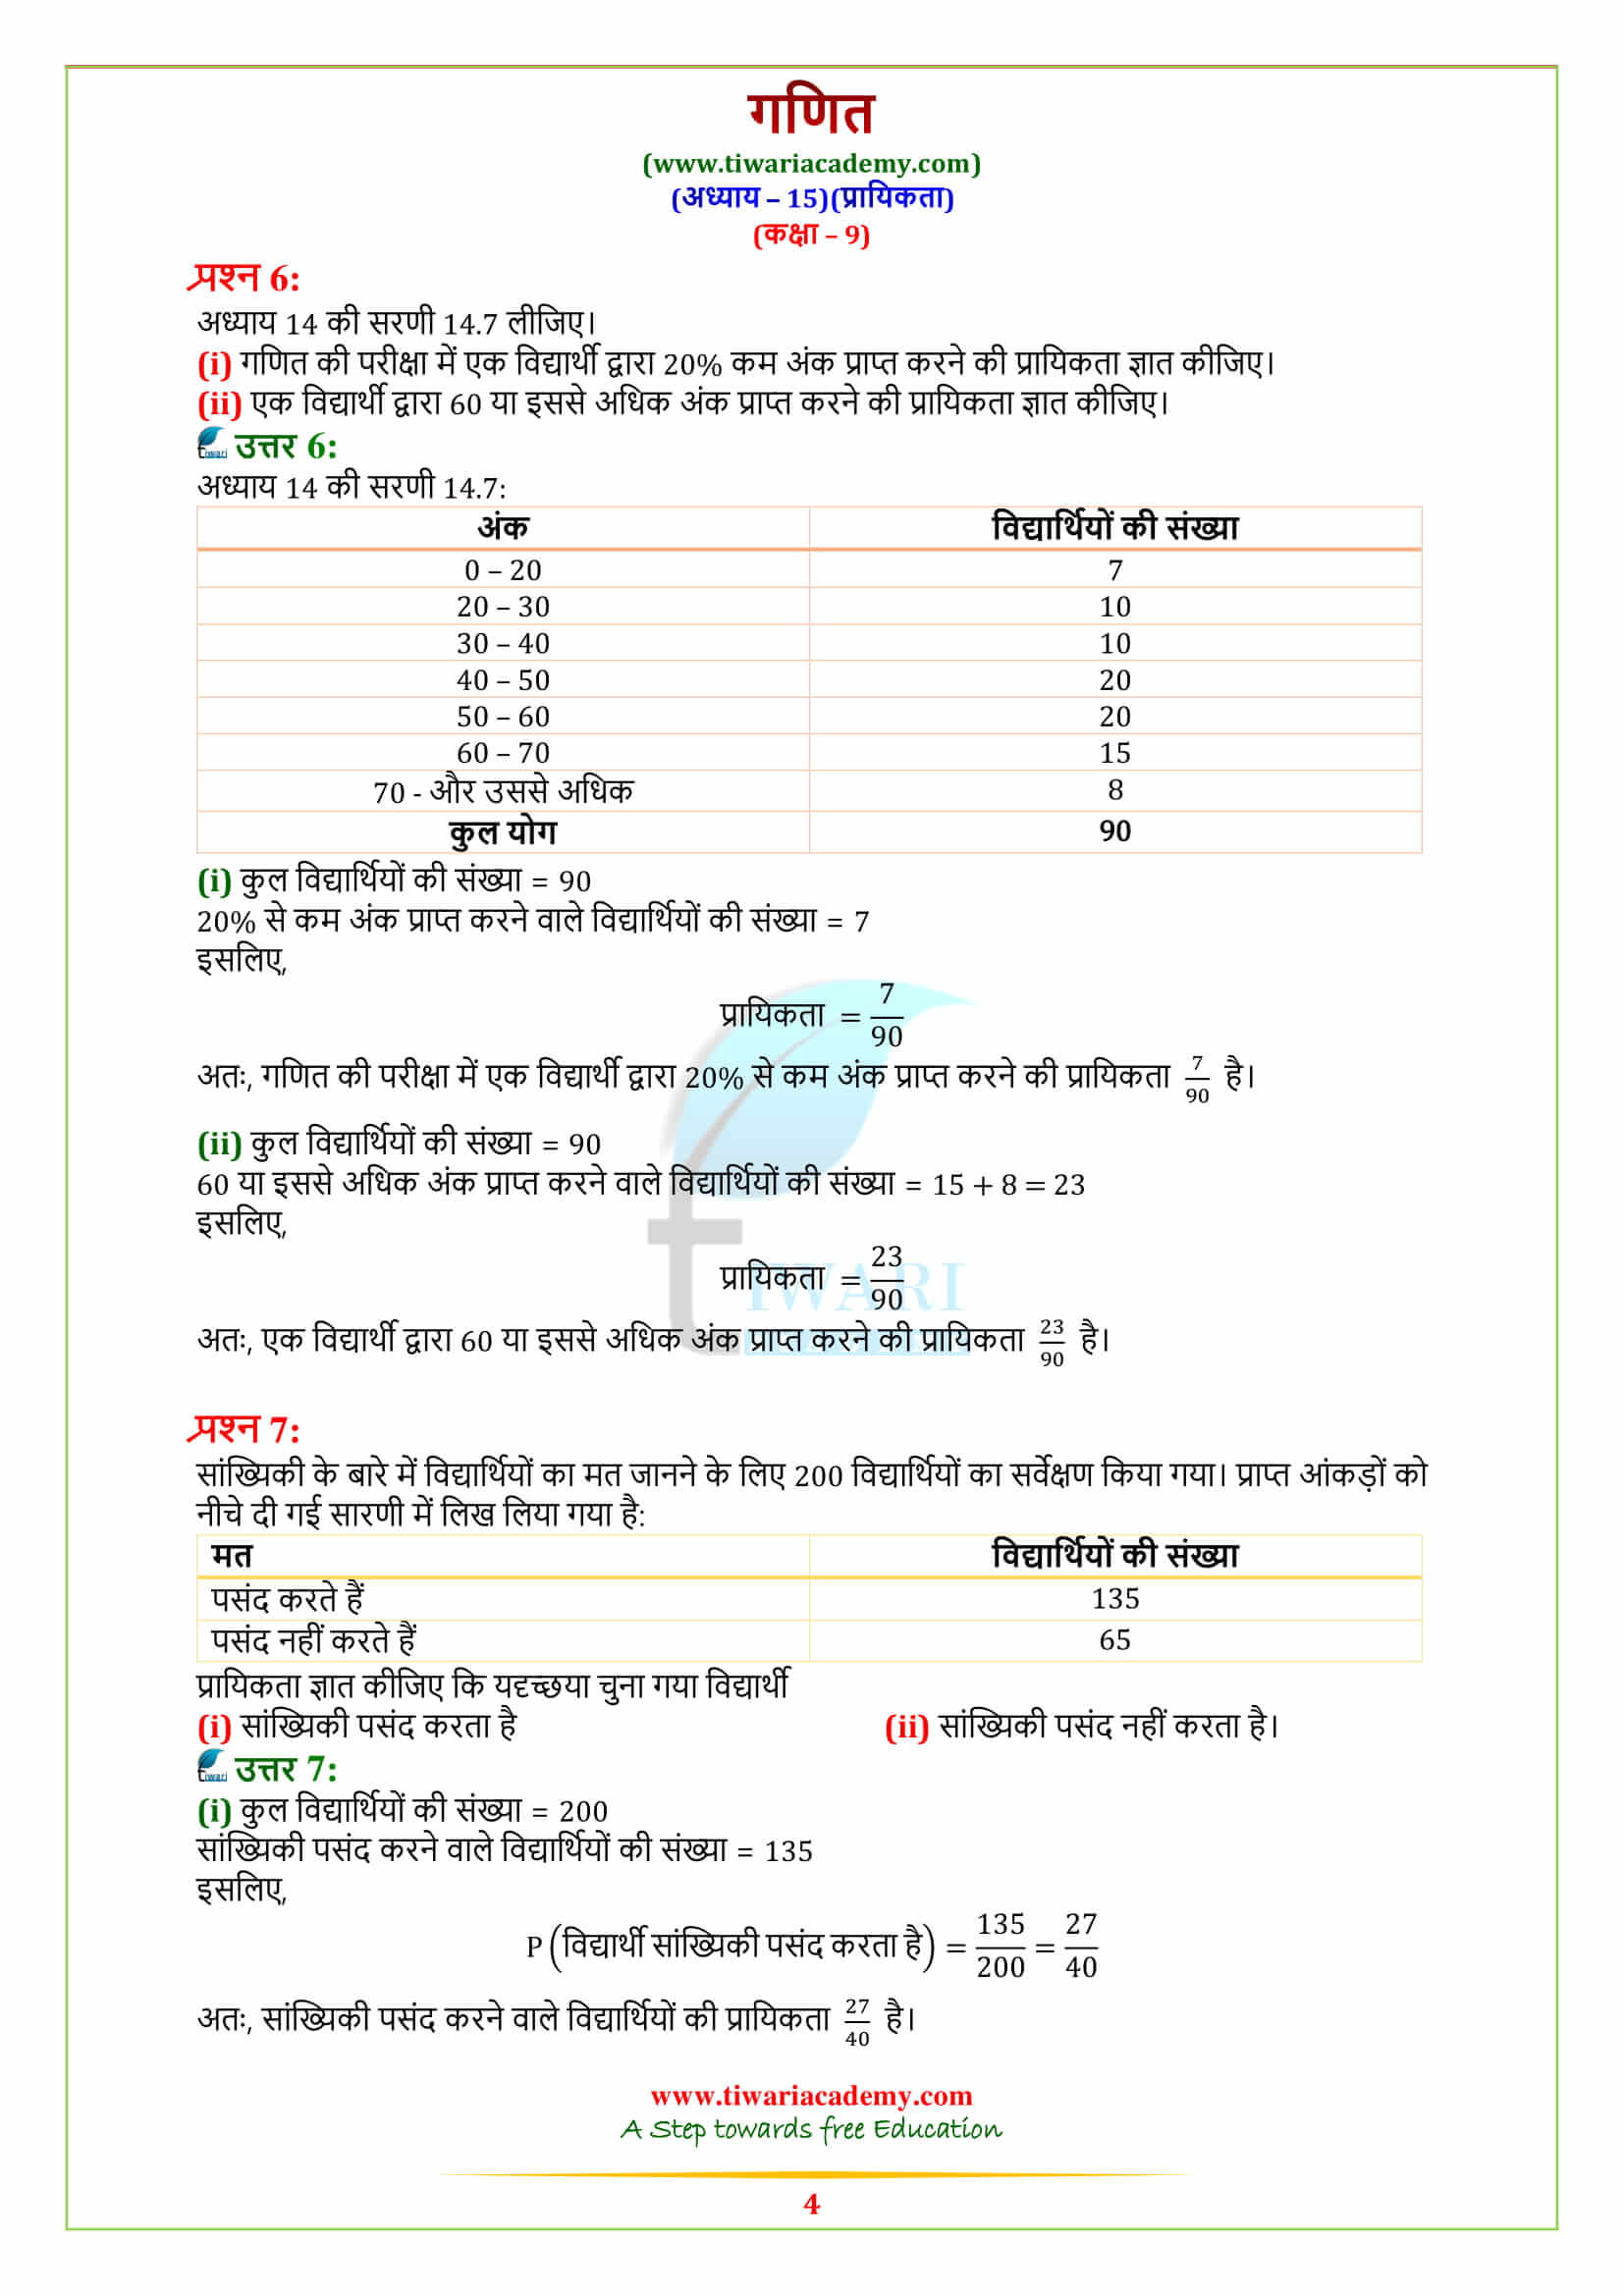 गणित
(www.tiwariacademy.com)
(अध्याय – 15)(प्रायिकता)
(कक्षा – 9)
प्रश्न 6:
अध्याय 14 की सरणी 14.7 लीजिए।
(i) गणित की परीक्षा में एक विद्यार्थी द्वारा 20% कम अंक प्राप्त करने की प्रायिकता ज्ञात कीजिए।
(ii) एक विद्यार्थी द्वारा 60 या इससे अधिक अंक प्राप्त करने की प्रायिकता ज्ञात कीजिए।
tiwari उत्तर 6:
अध्याय 14 की सरणी 14.7:
अंक विद्यार्थियों की संख्या
0 – 20 7
20 – 30 10
30 – 40 10
40 – 50 20
50 – 60 20
60 – 70 15
70 - और उससे अधिक 8
कुल योग 90
(i) कुल विद्यार्थियों की संख्या = 90
20% से कम अंक प्राप्त करने वाले विद्यार्थियों की संख्या = 7
इसलिए,
प्रायिकता = 7/90
अतः, गणित की परीक्षा में एक विद्यार्थी द्वारा 20% से कम अंक प्राप्त करने की प्रायिकता 7/90 है।
(ii) कुल विद्यार्थियों की संख्या = 90
60 या इससे अधिक अंक प्राप्त करने वाले विद्यार्थियों की संख्या = 15 + 8 = 23
इसलिए,
प्रायिकता = 23/90
TIWARI
अतः, एक विद्यार्थी द्वारा 60 या इससे अधिक अंक प्राप्त करने की प्रायिकता 23/90 है।
प्रश्न 7:
सांख्यिकी के बारे में विद्यार्थियों का मत जानने के लिए 200 विद्यार्थियों का सर्वेक्षण किया गया। प्राप्त आंकड़ों को
नीचे दी गई सारणी में लिख लिया गया है:
मत विद्यार्थियों की संख्या
पसंद करते हैं 135
पसंद नहीं करते हैं 65
प्रायिकता ज्ञात कीजिए कि यदृच्छया चुना गया विद्यार्थी
(i) सांख्यिकी पसंद करता है (ii) सांख्यिकी पसंद नहीं करता है।
tiwari उत्तर 7:
(i) कुल विद्यार्थियों की संख्या = 200
सांख्यिकी पसंद करने वाले विद्यार्थियों की संख्या = 135
इसलिए,
P (विद्यार्थी सांख्यिकी पसंद करता है) = 135/200 = 27/40
अतः, सांख्यिकी पसंद करने वाले विद्यार्थियों की प्रायिकता 27/40 है।
www.tiwariacademy.com
A Step towards free Education
4